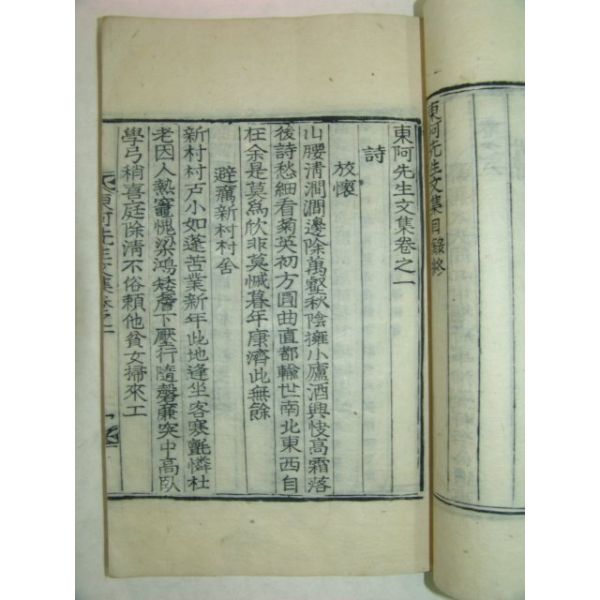 東阿先生文集目錄終
東阿先生文集卷之一
詩
放懷
山腰清澗澗邊除萬壑秋陰擁小廬酒興悛高霜落
後詩愁細看菊英初方圓曲直都輸世南北東西自
任余是莫為欣非莫慽暮年康濟此無餘
避癘新村村舍
新村村戶小如蓬苦業新年此地逢坐客寒氈憐杜
老因人熱竈愧梁鴻矮簷下壓行隨磬廉突中高臥
學弓稍喜庭除清不俗賴他貧女掃來工
東阿先生文集卷之一
一